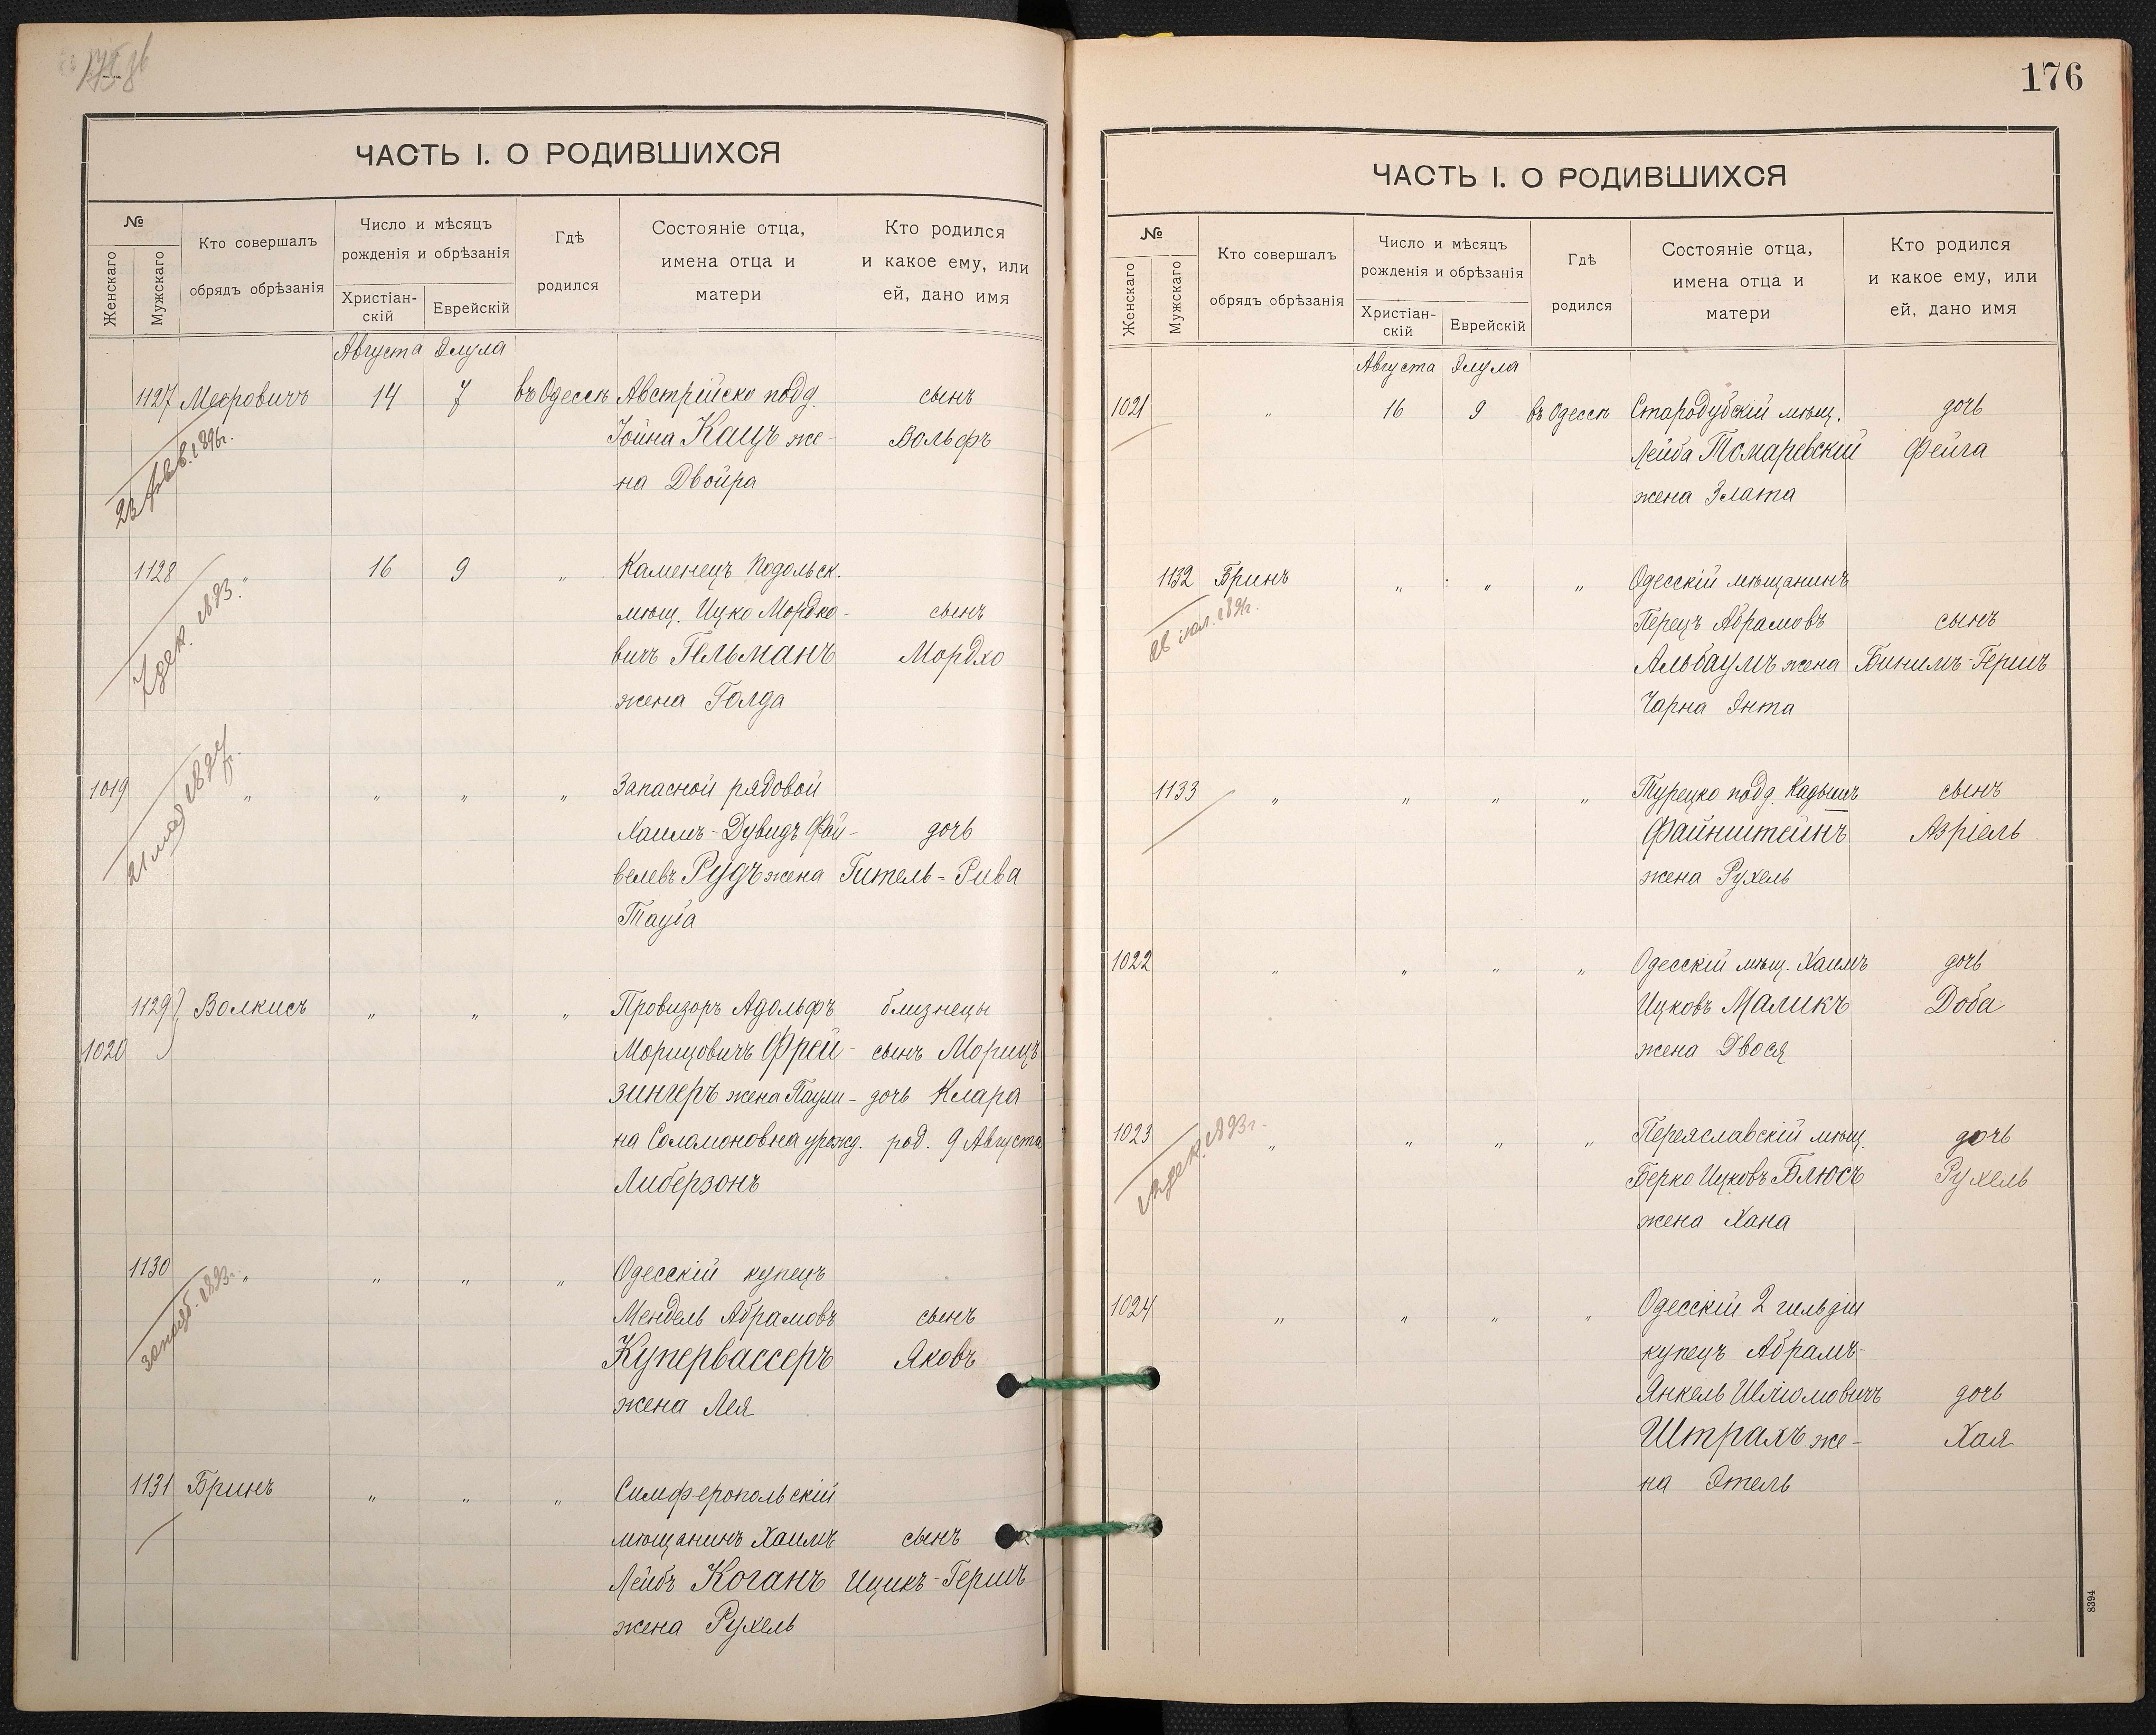 ЧАСТЬ I. О РОДИВШИХСЯ
№
Женскаго
Мужскаго
Кто совершалъ
обрядъ обрѣзанія
Число и мѣсяцъ
рожденія и обрѣзанія
Христіан-
скій
Еврейскій
Гдѣ
родился
Состояніе отца,
имена отца и
матери
Кто родился
и какое ему, или
ей, дано имя
Августа Элула
1127 Меровичъ 14 7 въ Одессѣ Австрійско подд. сынъ
Іойна Кацъ же- Вольфъ
на Двойра
23 февв. 1896г.
1128 " 16 9 " Каменецъ Подольск.
мѣщ. Ицко Мордко- сынъ
вичъ Гельманъ Мордхо
жена Голда
7 дек. 1893.
1019 " " " " Запасной рядовой
Хаимъ-Дувидъ Фай- дочь
велевъ Рудъ жена Гитель-Рива
Тауба
21 мая 1897г.
1129 Волкисъ " " " Провизоръ Адольфъ близнецы
1020 Морицовичъ Фрей- сынъ Морицъ
зингеръ жена Паули- дочь Клара
на Соломоновна урожд. род. 9 Августа
Либерзонъ
1130 " " " " Одесскій купецъ
Мендель Абрамовъ сынъ
Купервассеръ Яковъ
жена Лея
1893г.
1131 Бринъ " " " Симферопольскій
мѣщанинъ Хаимъ сынъ
Лейбъ Коганъ Ицикъ-Гершъ
жена Рухель
176
ЧАСТЬ I. О РОДИВШИХСЯ
№
Женскаго
Мужскаго
Кто совершалъ
обрядъ обрѣзанія
Число и мѣсяцъ
рожденія и обрѣзанія
Христіан-
скій
Еврейскій
Гдѣ
родился
Состояніе отца,
имена отца и
матери
Кто родился
и какое ему, или
ей, дано имя
Августа Элула
1021 " 16 9 въ Одессѣ Стародубскій мѣщ. дочь
Лейба Томаревскій Фейга
жена Злата
1132 Бринъ " " " Одесскій мѣщанинъ
Перецъ Абрамовъ сынъ
Альбаумъ жена Бинимъ-Гершъ
Чарна Энта
1133 " " " " Турецко подд. Кадышъ сынъ
Файнштейнъ Азріель
жена Рухель
1022 " " " " Одесскій мѣщ. Хаимъ дочь
Ицковъ Маликъ Доба
жена Двося
1023 " " " " Переяславскій мѣщ. дочь
Берко Ицковъ Блюсъ Рухель
жена Хана
дек. 1893г.
1024 " " " " Одесскій 2 гильдіи
купецъ Абрамъ-
Янкель Шліомовичъ дочь
Штрахъ же- Хая
на Этель
8394